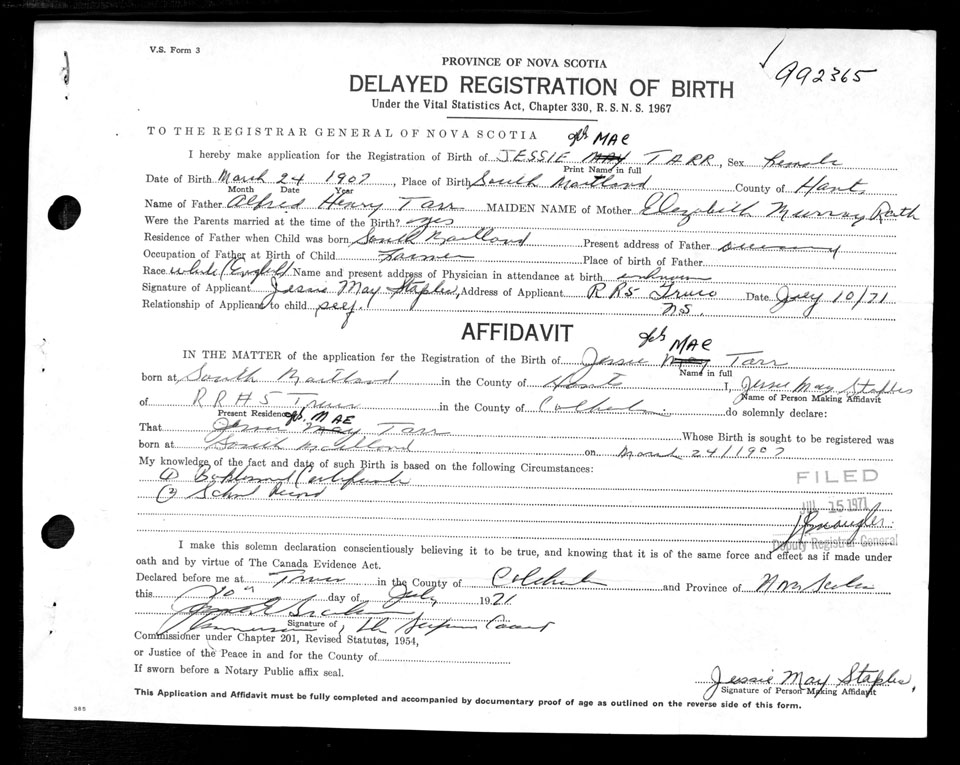 V.S. Form 3
992365
PROVINCE OF NOVA SCOTIA
DELAYED REGISTRATION OF BIRTH
Under the Vital Statistics Act, Chapter 330, R. S. N. S. 1967
TO THE REGISTRAR GENERAL OF NOVA SCOTIA
MAE
I hereby make application for the Registration of Birth of JESSIE MAY TARR, Sex Female
Print Name in full
Date of Birth March 24 1907, Place of Birth South Maitland County of Hants
Month Date Year
Name of Father Alfred Henry Tarr MAIDEN NAME of Mother Elizabeth Murray Roth
Were the Parents married at the time of the Birth? yes
Residence of Father when Child was born South Maitland Present address of Father
Occupation of Father at Birth of Child Farmer Place of birth of Father
Race white (English) Name and present address of Physician in attendance at birth unknown
Signature of Applicant Jessie May Staples, Address of Applicant R R 5 Truro Date July 10/71
N.S.
Relationship of Applicant to child self.
AFFIDAVIT
MAE
IN THE MATTER of the application for the Registration of the Birth of Jessie May Tarr
Name in full
born at South Maitland in the County of Hants I, Jessie May Staples
Name of Person Making Affidavit
of R R # 5 Truro in the County of Colchester do solemnly declare:
Present Residence
MAE
That Jessie May Tarr Whose Birth is sought to be registered was
born at South Maitland on March 24/1907
My knowledge of the fact and date of such Birth is based on the following Circumstances:
(1) Baptismal Certificate
(2) School Record
FILED
JUL 15 1971
Deputy Registrar General
I make this solemn declaration conscientiously believing it to be true, and knowing that it is of the same force and effect as if made under
oath and by virtue of The Canada Evidence Act.
Declared before me at Truro in the County of Colchester and Province of Nova Scotia
this 10th day of July 1971
Signature of
Commissioner of the Supreme Court
Commissioner under Chapter 201, Revised Statutes, 1954,
or Justice of the Peace in and for the County of
If sworn before a Notary Public affix seal.
Jessie May Staples.
Signature of Person Making Affidavit
This Application and Affidavit must be fully completed and accompanied by documentary proof of age as outlined on the reverse side of this form.
385